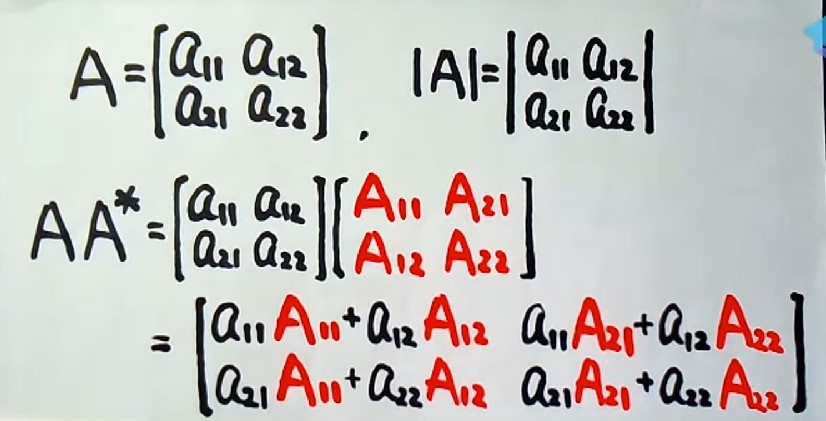 A = [a₁₁ a₁₂ a₂₁ a₂₂] , |A| = |a₁₁ a₁₂ a₂₁ a₂₂|
AA* = [a₁₁ a₁₂ a₂₁ a₂₂] [A₁₁ A₂₁ A₁₂ A₂₂]
= [a₁₁A₁₁+a₁₂A₁₂ a₁₁A₂₁+a₁₂A₂₂
a₂₁A₁₁+a₂₂A₁₂ a₂₁A₂₁+a₂₂A₂₂]